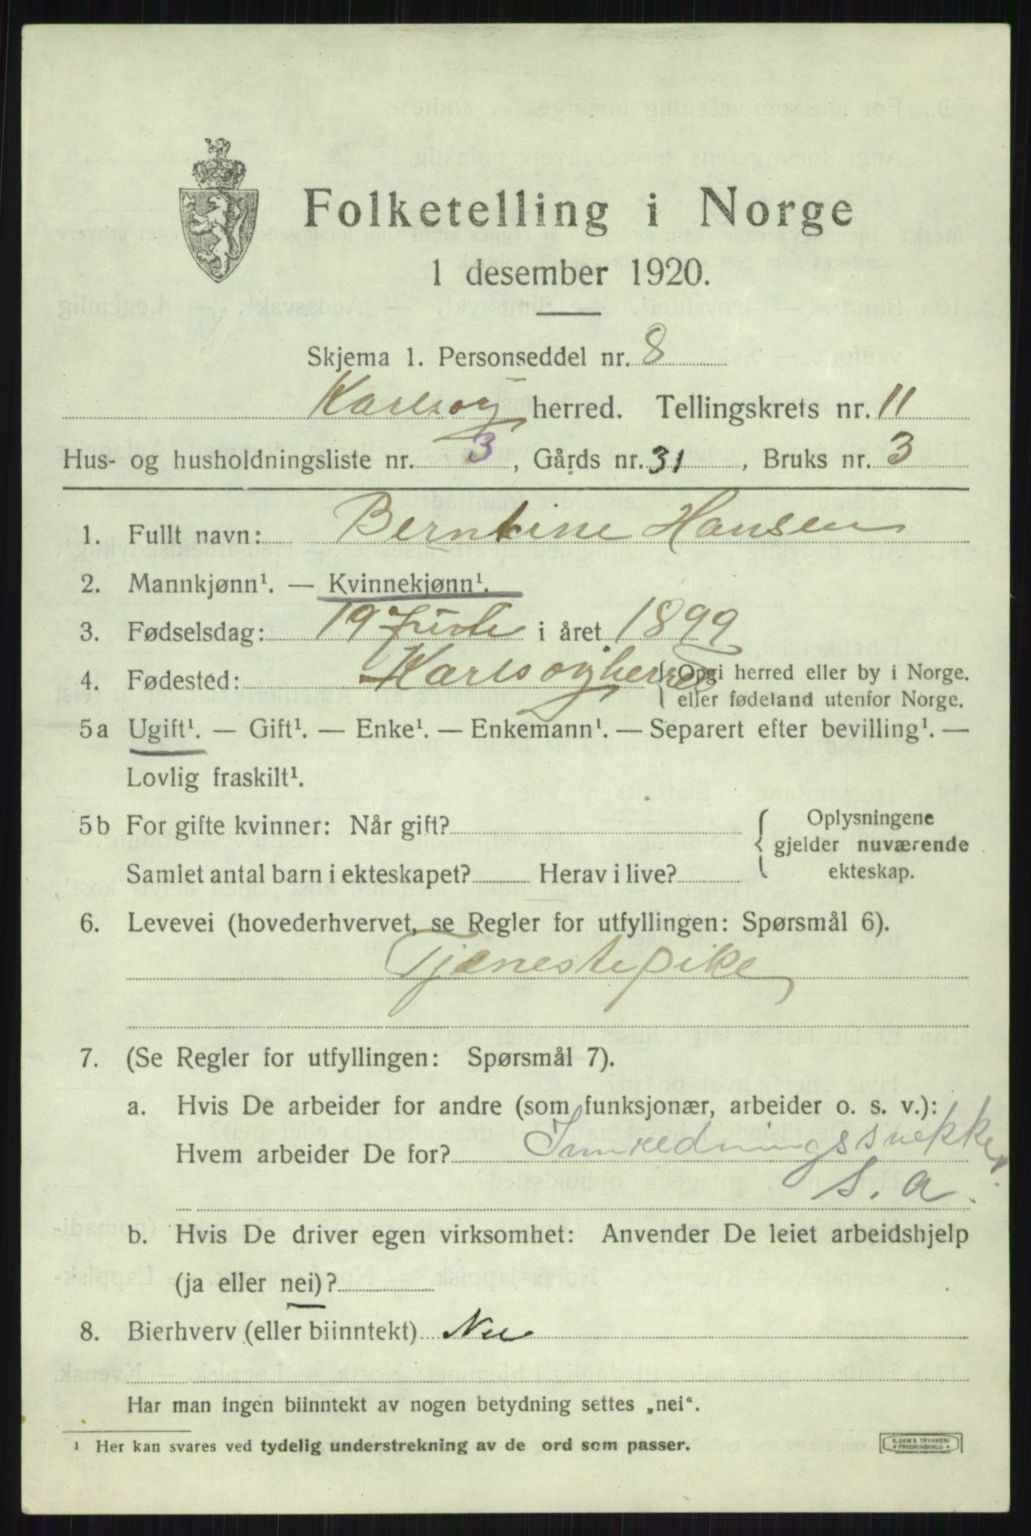 Folketelling i Norge
1 desember 1920.
Skjema 1. Personseddel nr. 8
Karlsøy herred. Tellingskrets nr. 11
Hus- og husholdningsliste nr. 3, Gårds nr. 31, Bruks nr. 3
1. Fullt navn: Berntine Hansen
2. Mannkjønn¹. — Kvinnekjønn¹.
3. Fødselsdag: 19 i året 1899
4. Fødested: Karlsøyherred { Opgi herred eller by i Norge.
eller fødeland utenfor Norge.
5a Ugift¹. — Gift¹. — Enke¹. — Enkemann¹. — Separert efter bevilling¹. —
Lovlig fraskilt¹.
5b For gifte kvinner: Når gift? { Oplysningene
gjelder nuværende
Samlet antal barn i ekteskapet? Herav i live? ekteskap.
6. Levevei (hovederhvervet, se Regler for utfyllingen: Spørsmål 6).
Tjenestepike
7. (Se Regler for utfyllingen: Spørsmål 7).
a. Hvis De arbeider for andre (som funksjonær, arbeider o. s. v.):
Hvem arbeider De for?
S. a.
b. Hvis De driver egen virksomhet: Anvender De leiet arbeidshjelp
(ja eller nei)?
8. Bierhverv (eller biinntekt) Nei
Har man ingen biinntekt av nogen betydning settes „nei“.
¹ Her kan svares ved tydelig understrekning av de ord som passer.